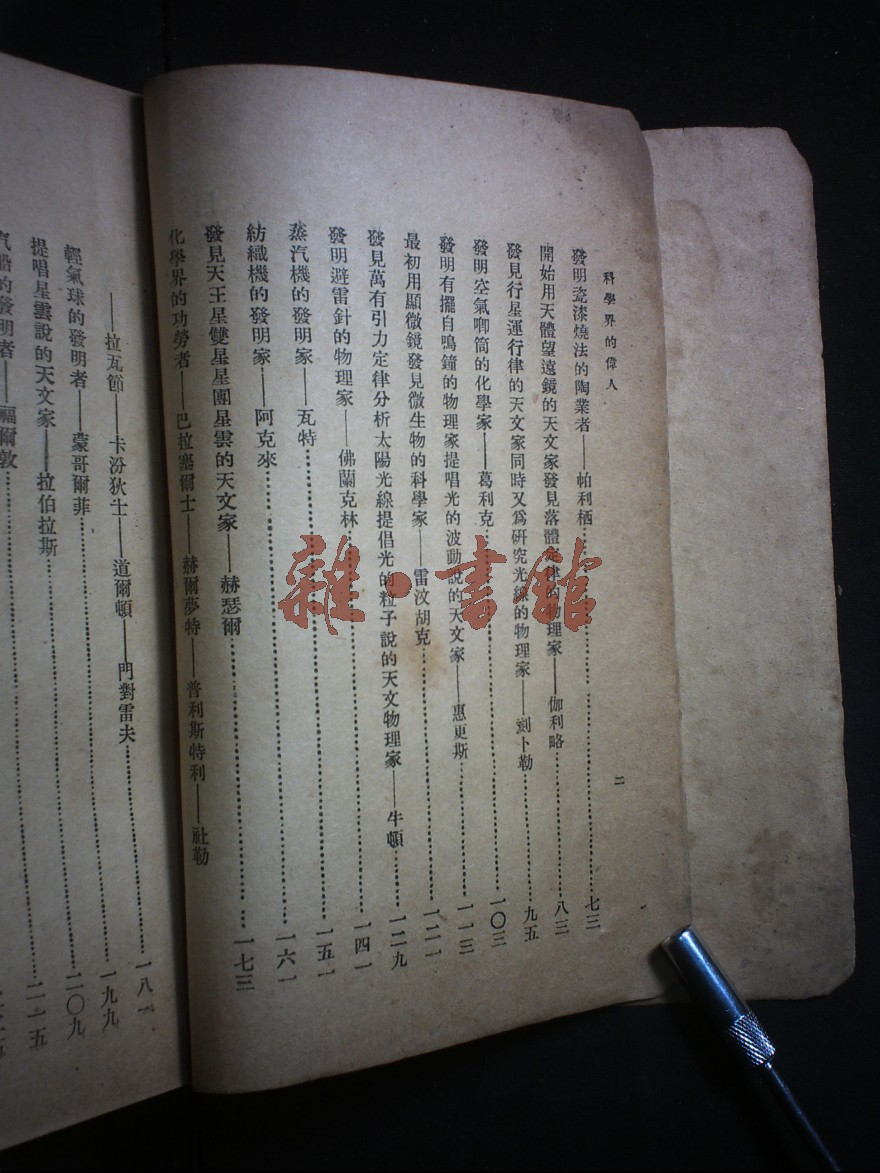 科學界的偉人
二
發明瓷漆燒法的陶業者——帕利栖……七三
開始用天體望遠鏡的天文家發見落體定律的物理家——伽利略……八三
發見行星運行律的天文家同時又爲研究光線的物理家——刻卜勒……九五
發明空氣唧筒的化學家——葛利克……一〇三
發明有擺自鳴鐘的物理家提唱光的波動說的天文家——惠更斯……一一三
最初用顯微鏡發見微生物的科學家——雷汶胡克……一二一
發見萬有引力定律分析太陽光線提倡光的粒子說的天文物理家——牛頓……一二九
發明避雷針的物理家——佛蘭克林……一四一
蒸汽機的發明家——瓦特……一五一
紡織機的發明家——阿克來……一六一
發見天王星雙星星團星雲的天文家——赫瑟爾……一七三
化學界的功勞者——巴拉塞爾士——赫爾夢特——普利斯特利——社勒
——拉瓦節——卡汾狄士——道爾頓——門對雷夫……一八一
輕氣球的發明者——蒙哥爾菲……一九九
提唱星雲說的天文家——拉伯拉斯……二〇九
汽船的發明者——福爾敦……二一五
雜·書館